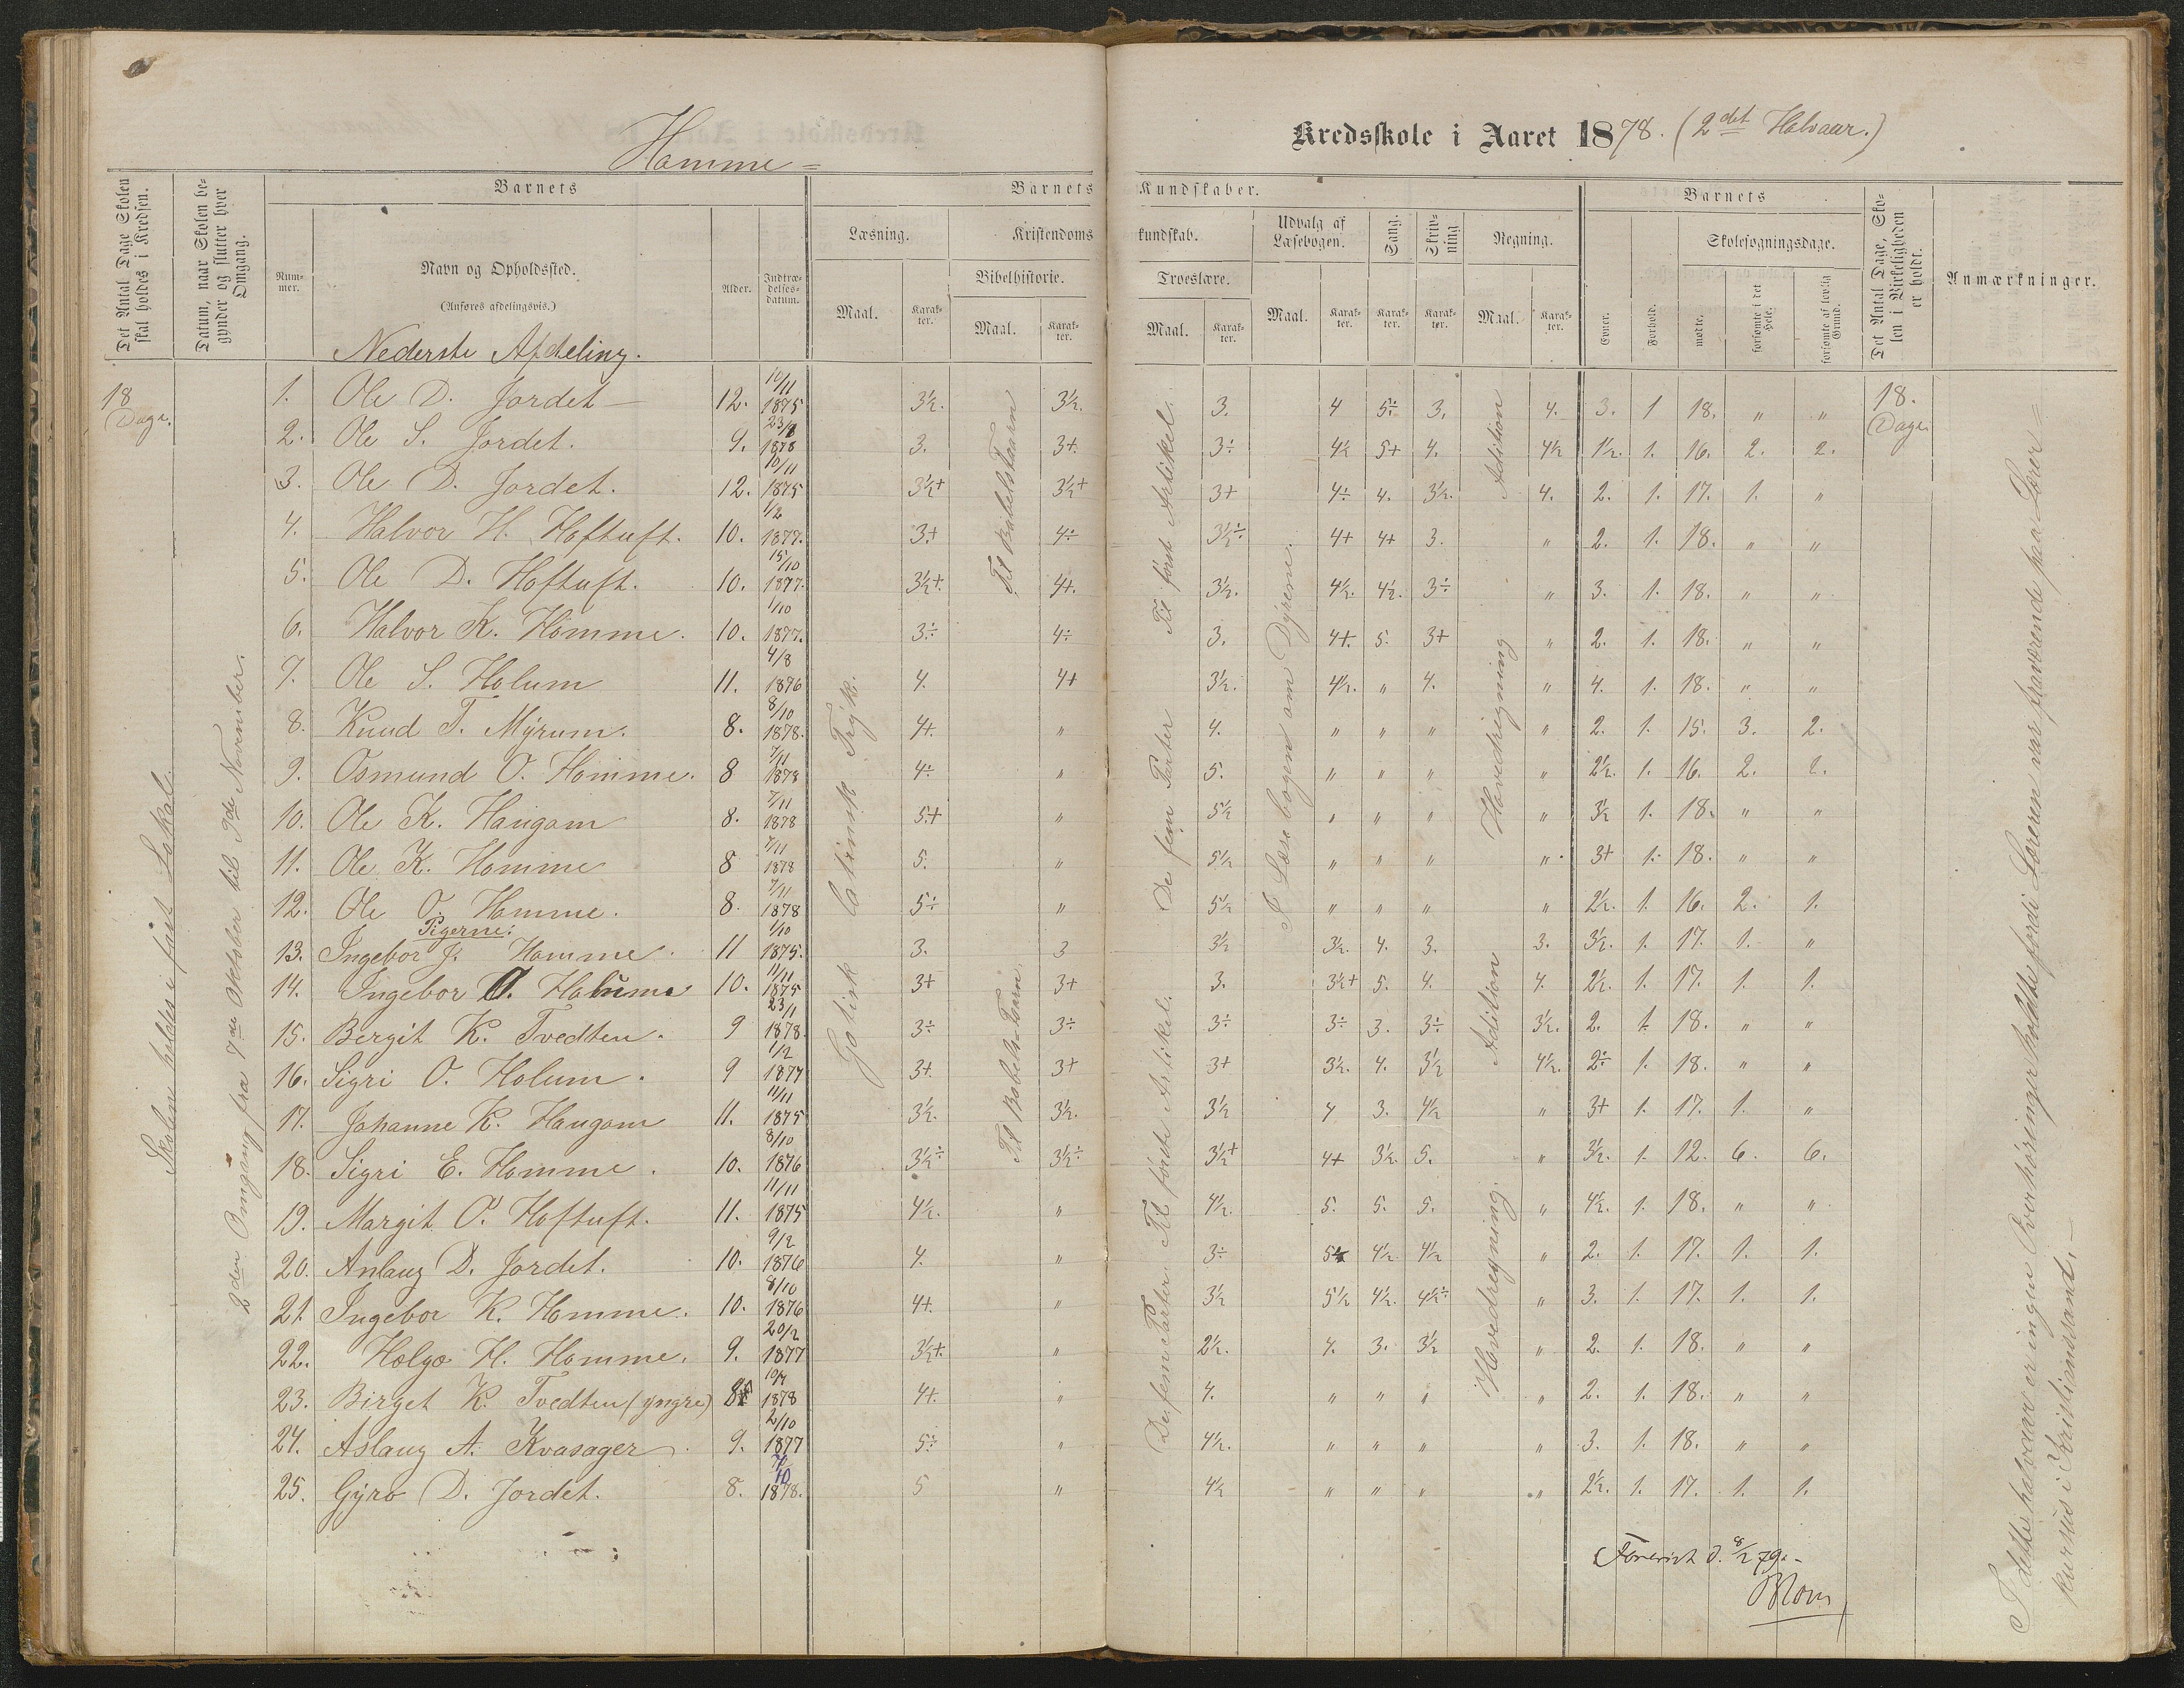 Homme =
Kredsskole i Aaret 1878. (2det Halvaar.)
Det Antal Dage Skolen skal holdes i Kredsen.
Datum, naar Skolen begynder og slutter hver Omgang.
Barnets
Num-mer.
Navn og Opholdssted.
(Anføres afdelingsvis.)
Alder.
Indtræ-delses-datum.
Barnets Kundskaber.
Læsning.
Maal.
Karak-ter.
Kristendomskundskab.
Bibelhistorie.
Maal.
Karak-ter.
Troeslære.
Maal.
Karak-ter.
Udvalg af Læsebogen.
Maal.
Karak-ter.
Sang.
Karak-ter.
Skriv-ning
Karak-ter.
Regning.
Maal.
Karak-ter.
Barnets
Evner.
Forhold.
Skolesøgningsdage.
mødte.
forsømte i det Hele.
forsømte af lovlig Grund.
Det Antal Dage, Sko-len i Virkeligheden er holdt.
Anmærkninger.
Nederste Afdeling.
18 Dage.
18. Dage.
Skolen holdes i fast Lokale.
2den Omgang fra 7de Oktober til 9de November.
Latinsk Tryk.
Gotisk
Til Babelstaarn
Til Babels-Taarn
Til först Artikel.
De fem Parter
Til förste Artikel.
De fem Parter.
I Læsebogen om Dyrene.
Adition
Hovedregning
Adition
Hovedregning.
1. Ole D. Jordet 12. 10/11 1875 3½. 3½. 3. 4 5÷ 3. 4. 3. 1 18. " "
2. Ole S. Jordet. 9. 23/8 1878 3. 3+ 3÷ 4½ 5+ 4. 4½ 1½. 1. 16. 2. 2.
3. Ole D. Jordet. 12. 10/11 1875 3½+ 3½+ 3+ 4÷ 4. 3½. 4. 2. 1. 17. 1. "
4. Halvor H. Hoftuft. 10. 1/2 1877. 3+ 4÷ 3½÷ 4+ 4+ 3. " 2. 1. 18. " "
5. Ole D. Hoftuft. 10. 15/10 1877. 3½+. 4+. 3½. 4½. 4½. 3÷ " 3. 1. 18. " "
6. Halvor K. Homme. 10. 1/10 1877. 3÷ 4÷ 3. 4+. 5. 3+ " 2. 1. 18. " "
7. Ole S. Holum 11. 4/8 1876 4. 4+ 3½. 4½. " 4. " 4. 1. 18. " "
8. Knud T. Myrum. 8. 8/10 1878. 4+. " 4. " " " " 2. 1. 15. 3. 2.
9. Osmund O. Homme. 8 7/11 1878 4÷ " 5. " " " " 2½. 1. 16. 2. 2.
10. Ole K. Haugom 8. 7/11 1878 5+ " 5½ " " " " 3½ 1. 18. " "
11. Ole K. Homme 8 7/11 1878 5. " 5½ " " " " 3+ 1. 18. " "
12. Ole O. Homme. 8. 7/11 1878 5÷ " 5½ " " " " 2½. 1. 16. 2. 1.
Pigerne:
13. Ingebor J. Homme. 11 1/10 1875. 3. 3 3½ 3½. 4. 3. 3. 3½. 1. 17. 1. "
14. Ingebor O. 10. 11/11 1875 3+ 3+ 3. 3½+ 5. 4. 4. 2½. 1. 17. 1. 1.
15. Bergit K. Tvedten. 9 23/1 1878. 3÷ 3÷ 3÷ 3÷ 3. 3÷ 3½. 2. 1. 18. " "
16. Sigri O. Holum. 9 1/2 1877 3+. 3+ 3+ 3½. 4. 3½ 4½. 2÷ 1. 18. " "
17. Johanne K. Haugom 11. 11/11 1875 3½. 3½. 3½ 4 3. 4½ " 3+ 1. 17. 1. "
18. Sigri E. Homme. 10. 8/10 1876 3½÷ 3½÷ 3½+ 4+ 3½. 5. " 3½. 1. 12. 6. 6.
19. Margit O. Hoftuft. 11. 11/11 1875 4½. " 4½. 5. 5. 5. " 4½. 1. 18. " "
20. Anlaug D. Jordet. 10. 9/2 1876 4. " 3÷ 4½ 4½ " 2. 1. 17. 1. 1.
21. Ingebor K. Homme. 10. 8/10 1876 4+. " 3½ 5½ 4½. 4½÷ " 3. 1. 17. 1. 1.
22. Helge H. Homme. 9. 20/2 1877 3½+. " 2½. 4. 3. 3½ " 2. 1. 18. " "
23. Birget K. Tvedten (yngre) 8 1878 4+. " 4. " " " " 2. 1. 18. " "
24. Aslaug A. Kvasager 9. 2/10 1877 5÷ " 4½. " " " " 3. 1. 18. " "
25. Gyro D. Jordet. 8. 1878. 5 " 4½ " " " " 2½. 1. 17. 1. 1.
I dette halvaar er ingen Overhöringer holdte fordi Læreren var fraværende paa Lærer=
kursus i Kristianssand. –
Forevist d. 8/2 79.-
Mom